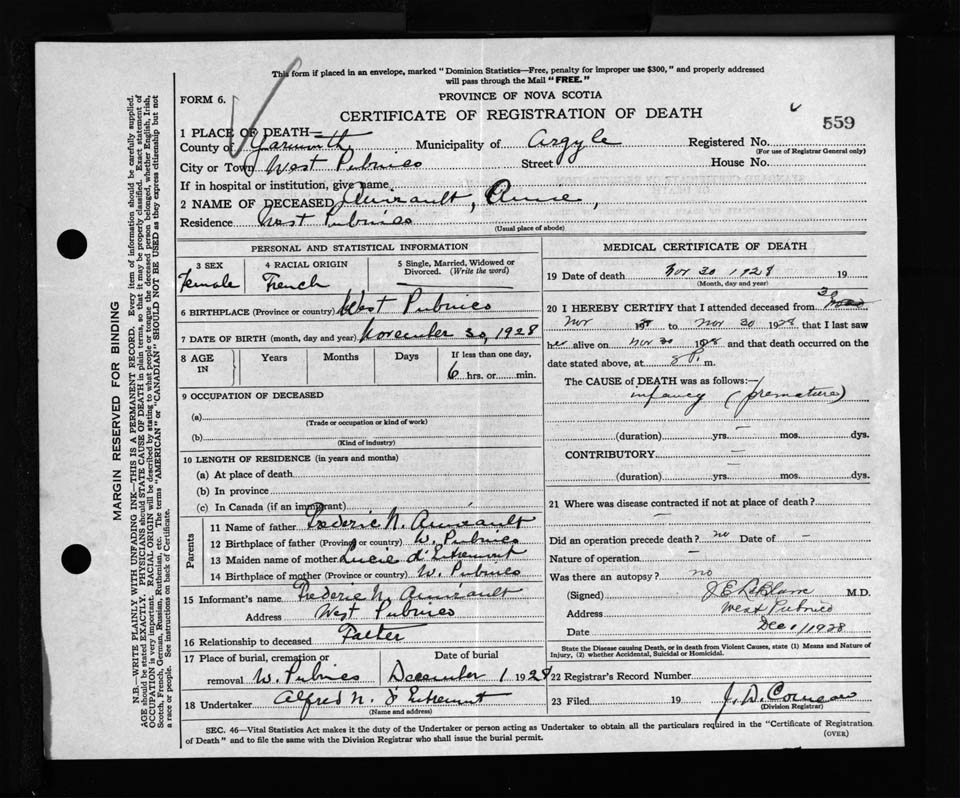 This form if placed in an envelope, marked "Dominion Statistics—Free, penalty for improper use $300," and properly addressed
will pass through the Mail "FREE."
FORM 6.
PROVINCE OF NOVA SCOTIA
CERTIFICATE OF REGISTRATION OF DEATH
559
1 PLACE OF DEATH—
County of Yarmouth Municipality of Argyle Registered No.
(For use of Registrar General only)
City or Town West Pubnico Street House No.
If in hospital or institution, give name
2 NAME OF DECEASED Amirault, Annie,
Residence West Pubnico
(Usual place of abode)
PERSONAL AND STATISTICAL INFORMATION
3 SEX 4 RACIAL ORIGIN 5 Single, Married, Widowed or Divorced. (Write the word)
Female French —
6 BIRTHPLACE (Province or country) West Pubnico
7 DATE OF BIRTH (month, day and year) November 30, 1928
8 AGE IN Years Months Days If less than one day,
6 hrs. or min.
9 OCCUPATION OF DECEASED
(a)
(Trade or occupation or kind of work)
(b)
(Kind of industry)
10 LENGTH OF RESIDENCE (in years and months)
(a) At place of death
(b) In province
(c) In Canada (if an immigrant)
Parents
11 Name of father Frederic N. Amirault
12 Birthplace of father (Province or country) W. Pubnico
13 Maiden name of mother Lucie d'Entremont
14 Birthplace of mother (Province or country) W. Pubnico
15 Informant's name Frederic N. Amirault
Address West Pubnico
16 Relationship to deceased Father
17 Place of burial, cremation or removal W. Pubnico Date of burial December 1 1928
18 Undertaker Alfred N. d'Entremont
(Name and address)
MEDICAL CERTIFICATE OF DEATH
19 Date of death Nov 30 1928 19
(Month, day and year)
20 I HEREBY CERTIFY that I attended deceased from 30
Nov 19 to Nov 30 1928 that I last saw
her alive on Nov 30 1928 and that death occurred on the
date stated above, at 8 P. m.
The CAUSE of DEATH was as follows:—
infancy (premature)
(duration) — yrs. mos. dys.
CONTRIBUTORY —
(duration) — yrs. mos. dys.
21 Where was disease contracted if not at place of death?
—
Did an operation precede death? no Date of —
Nature of operation —
Was there an autopsy? no
(Signed) J E LeBlanc M.D.
Address West Pubnico
Date Dec 1/1928
State the Disease causing Death, or in death from Violent Causes, state (1) Means and Nature of
Injury, (2) whether Accidental, Suicidal or Homicidal.
22 Registrar's Record Number
23 Filed 19 J. D. Comeau
(Division Registrar)
SEC. 46—Vital Statistics Act makes it the duty of the Undertaker or person acting as Undertaker to obtain all the particulars required in the "Certificate of Registration
of Death" and to file the same with the Division Registrar who shall issue the burial permit.
(OVER)
MARGIN RESERVED FOR BINDING
N.B.—WRITE PLAINLY WITH UNFADING INK—THIS IS A PERMANENT RECORD. Every item of information should be carefully supplied.
AGE should be stated EXACTLY. PHYSICIANS should STATE CAUSE OF DEATH in plain terms, so that it may be properly classified. Exact statement of
OCCUPATION is very important. RACIAL ORIGIN will be described by stating to what people or tongue the deceased person belonged, whether English, Irish,
Scotch, French, German, Russian, Ruthenian, etc. The terms "AMERICAN" or "CANADIAN" SHOULD NOT BE USED as they express citizenship but not
a race or people. See instructions on back of Certificate.